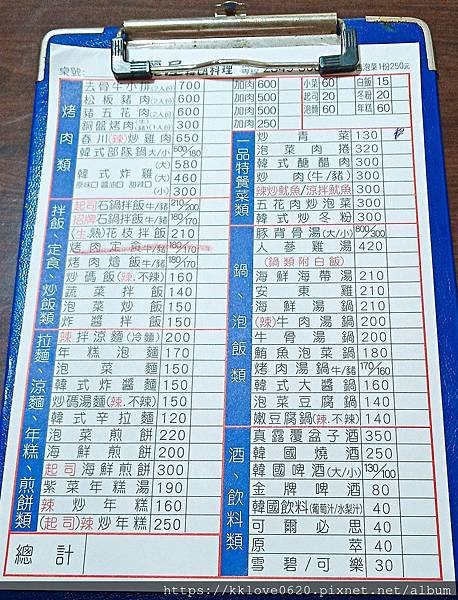 桌號:
泡菜1份250元
烤肉類
去骨牛小排(2人份) 700 加肉600 小菜60 白飯15
松板豬肉(2人份) 600 加肉500 起司20 冬粉20
豬五花肉(2人份) 600 加肉500 泡麵60 年糕60
銅盤烤肉 450 加肉250
春川(辣)炒雞肉 650
韓式部隊鍋大/小 600/180
韓式炸雞 (大) 580
(大) 460
原味口 醬油口 甜辣口 (小) 300
拌飯、定食、炒飯類
起司石鍋拌飯牛/豬 210/200
招牌石鍋拌飯牛/豬 180/170
(生.熟)花枝拌飯 210
烤肉定食牛/豬 180/170
烤肉燴飯牛/豬 180/170
炒碼飯(辣.不辣) 160
蔬菜拌飯 140
泡菜炒飯 150
炸醬拌飯 150
拉麵、涼麵、年糕、煎餅類
辣拌涼麵(冷麵) 200
年糕泡麵 170
泡菜麵 150
韓式炸醬麵 150
炒碼湯麵(辣.不辣) 150
韓式辛拉麵 120
泡菜煎餅 220
海鮮煎餅 200
起司海鮮煎餅 300
紫菜年糕湯 190
辣炒年糕 160
(起司)辣炒年糕 250
總計
一品特餐菜類
炒青菜 130
泡菜肉捲 320
韓式醣醋肉 300
炒肉(牛/豬) 300
辣炒魷魚/涼拌魷魚 300
五花肉炒泡菜 300
韓式炒冬粉 300
鍋、泡飯類
豚背骨湯(大/小) 800/300
人參雞湯 420
(鍋類附白飯)
海鮮海帶湯 210
安東雞 210
海鮮湯鍋 210
(辣)牛肉湯鍋 200
牛骨湯鍋 200
鮪魚泡菜鍋 180
烤肉湯鍋牛/豬 170/160
韓式大醬鍋 150
泡菜豆腐鍋 140
嫩豆腐鍋(辣.不辣) 140
酒、飲料類
真露覆盆子酒 350
韓國燒酒 250
韓國啤酒(大/小) 130/100
金牌啤酒 80
韓國飲料(葡萄汁/水梨汁) 40
可爾必思 40
原萃 40
雪碧/可樂 30
https://kklove0620.pixnet.net/album